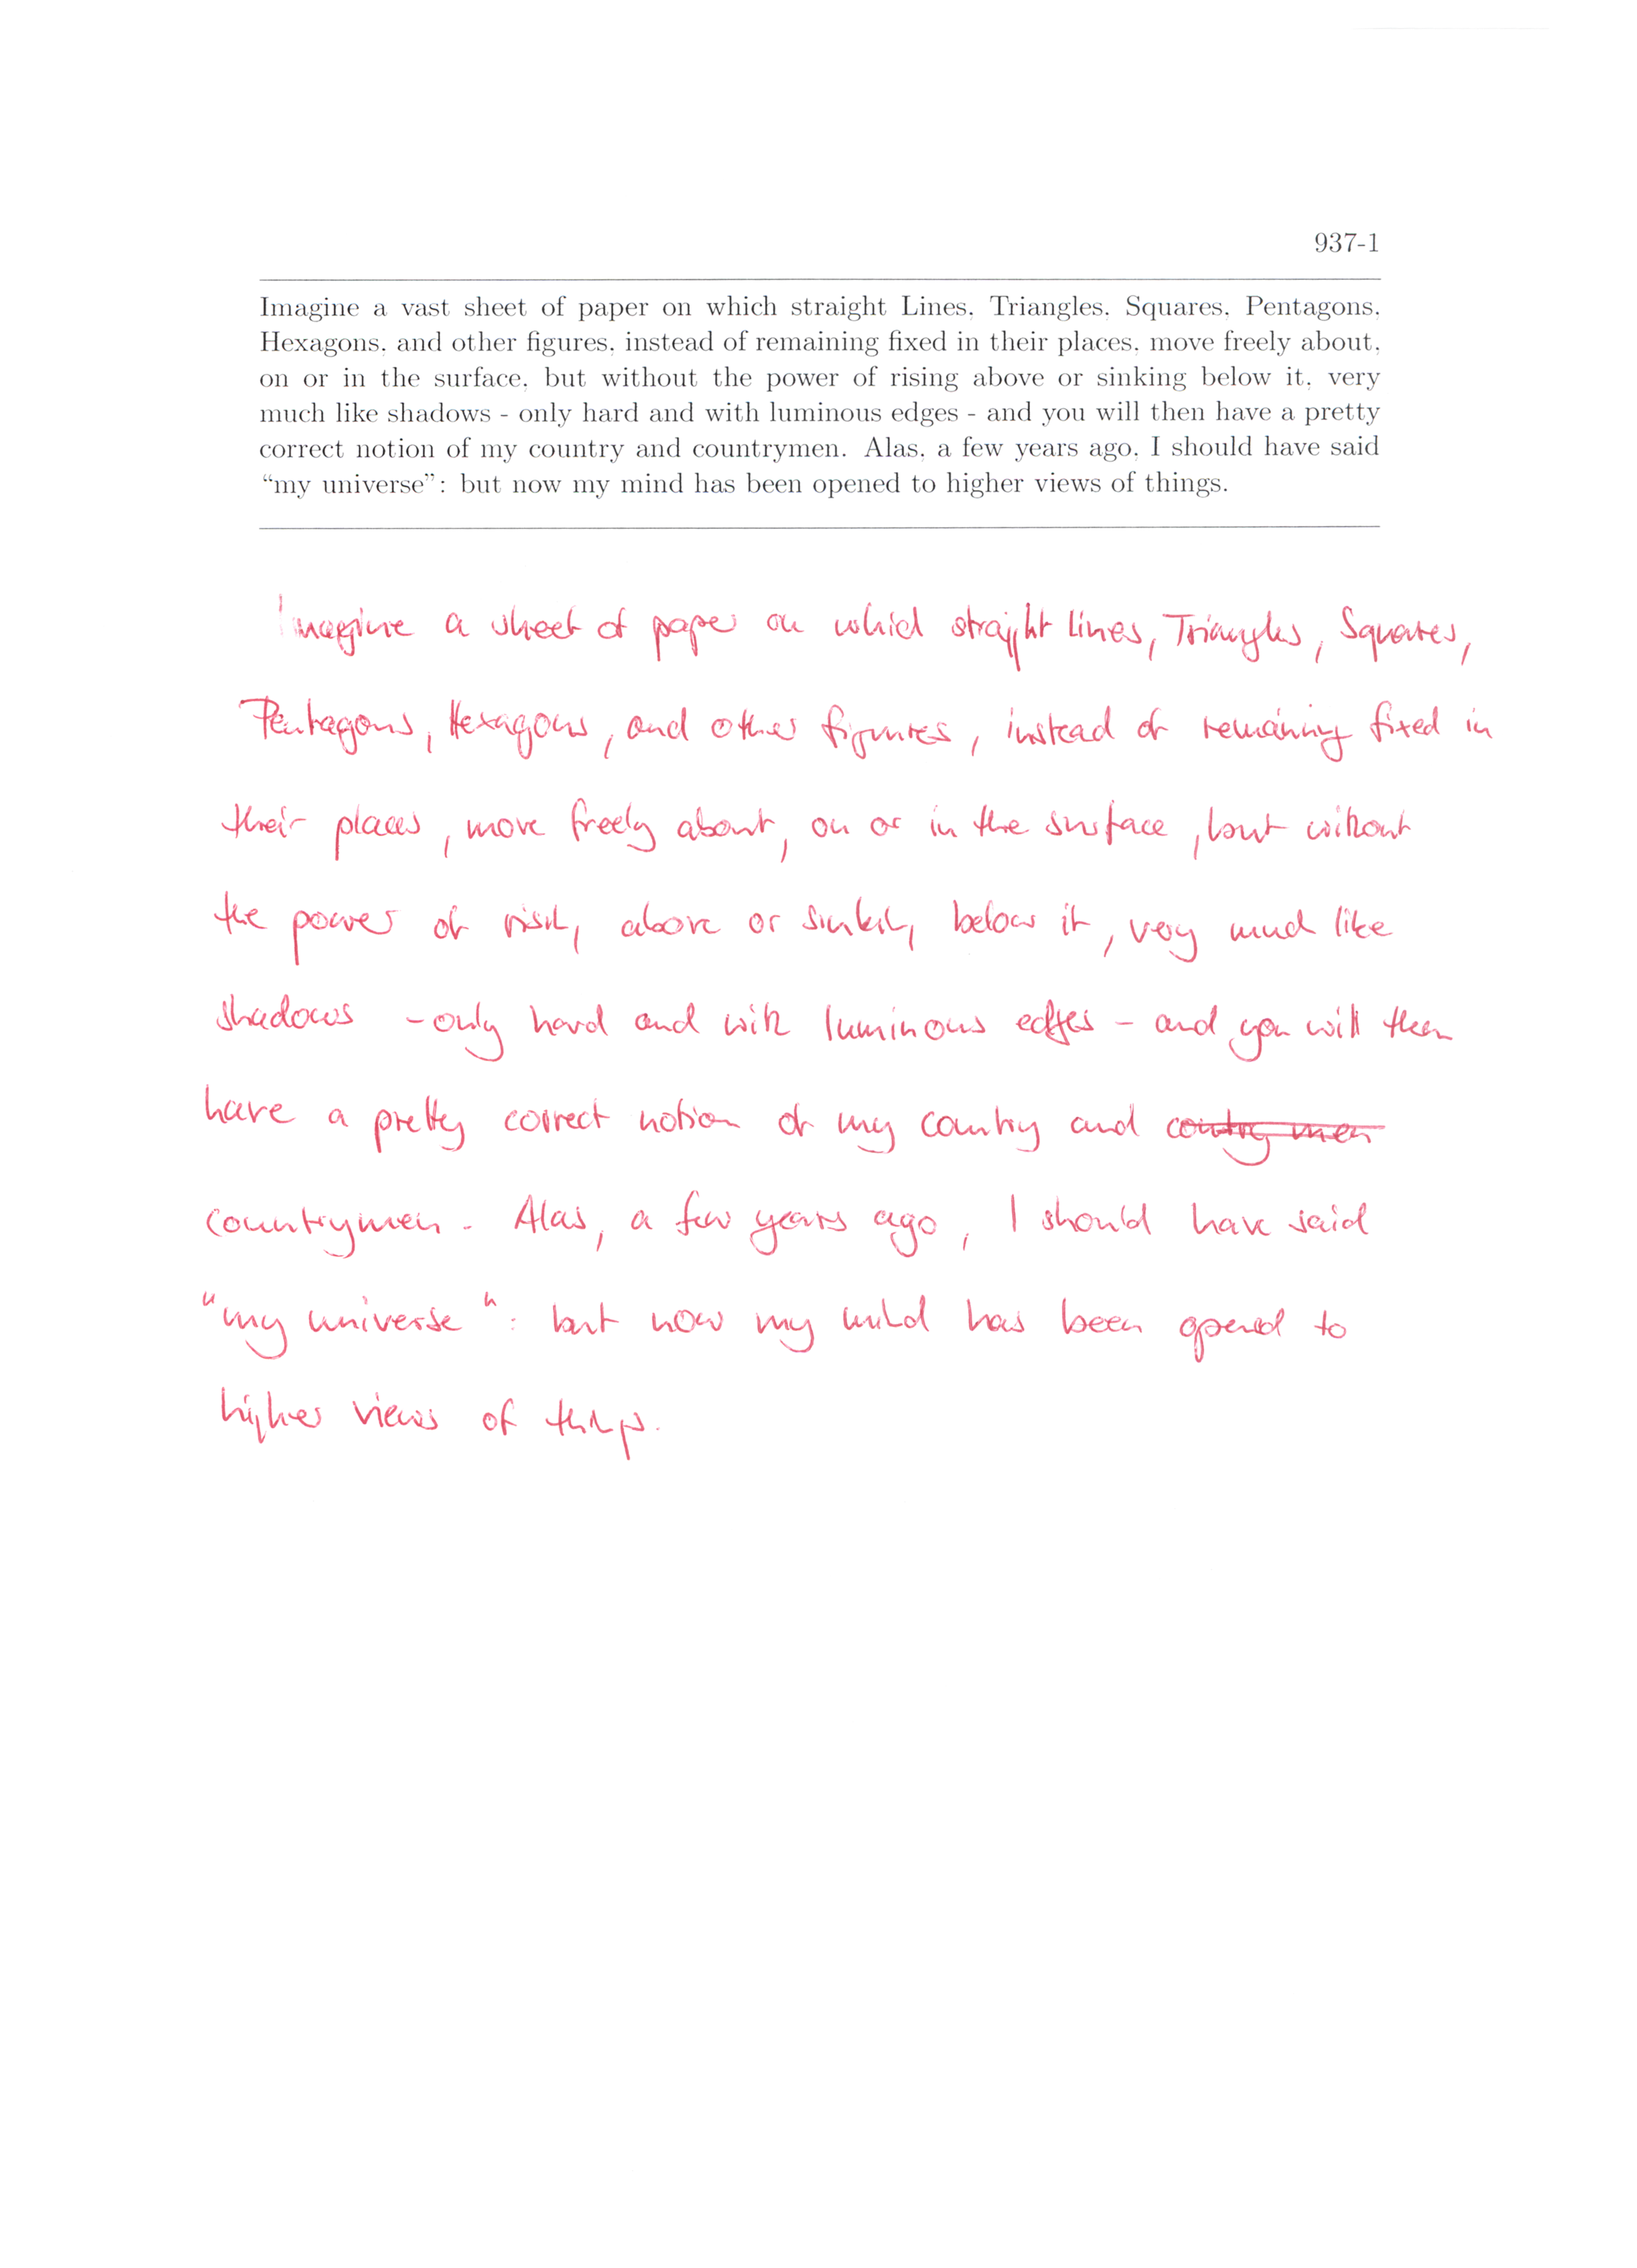 937-1
Imagine a vast sheet of paper on which straight Lines, Triangles, Squares, Pentagons,
Hexagons, and other figures, instead of remaining fixed in their places, move freely about,
on or in the surface, but without the power of rising above or sinking below it, very
much like shadows - only hard and with luminous edges - and you will then have a pretty
correct notion of my country and countrymen. Alas, a few years ago, I should have said
“my universe”: but now my mind has been opened to higher views of things.
Imagine a sheet of paper on which straight Lines, Triangles, Squares,
Pentagons, Hexagons, and other figures, instead of remaining fixed in
their places, move freely about, on or in the surface, but without
the power of rising above or sinking below it, very much like
shadows - only hard and with luminous edges - and you will then
have a pretty correct notion of my country and contry men
countrymen. Alas, a few years ago, I should have said
"my universe": but now my mind has been opened to
higher views of things.